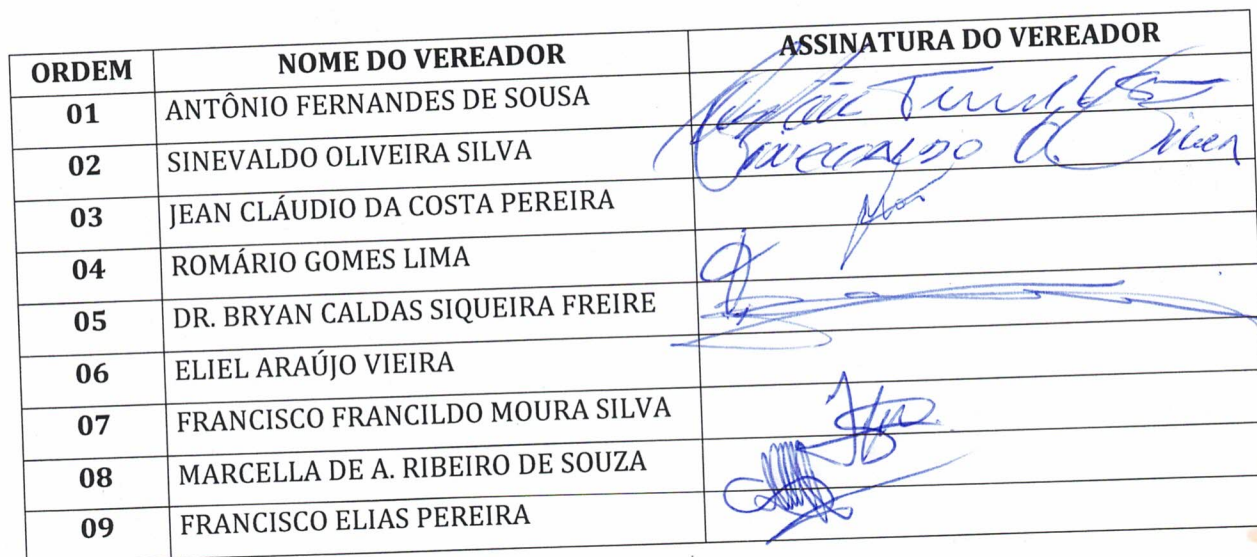 ORDEM NOME DO VEREADOR ASSINATURA DO VEREADOR
01 ANTÔNIO FERNANDES DE SOUSA
02 SINEVALDO OLIVEIRA SILVA Sinevaldo O. Silva
03 JEAN CLÁUDIO DA COSTA PEREIRA
04 ROMÁRIO GOMES LIMA
05 DR. BRYAN CALDAS SIQUEIRA FREIRE
06 ELIEL ARAÚJO VIEIRA
07 FRANCISCO FRANCILDO MOURA SILVA
08 MARCELLA DE A. RIBEIRO DE SOUZA
09 FRANCISCO ELIAS PEREIRA